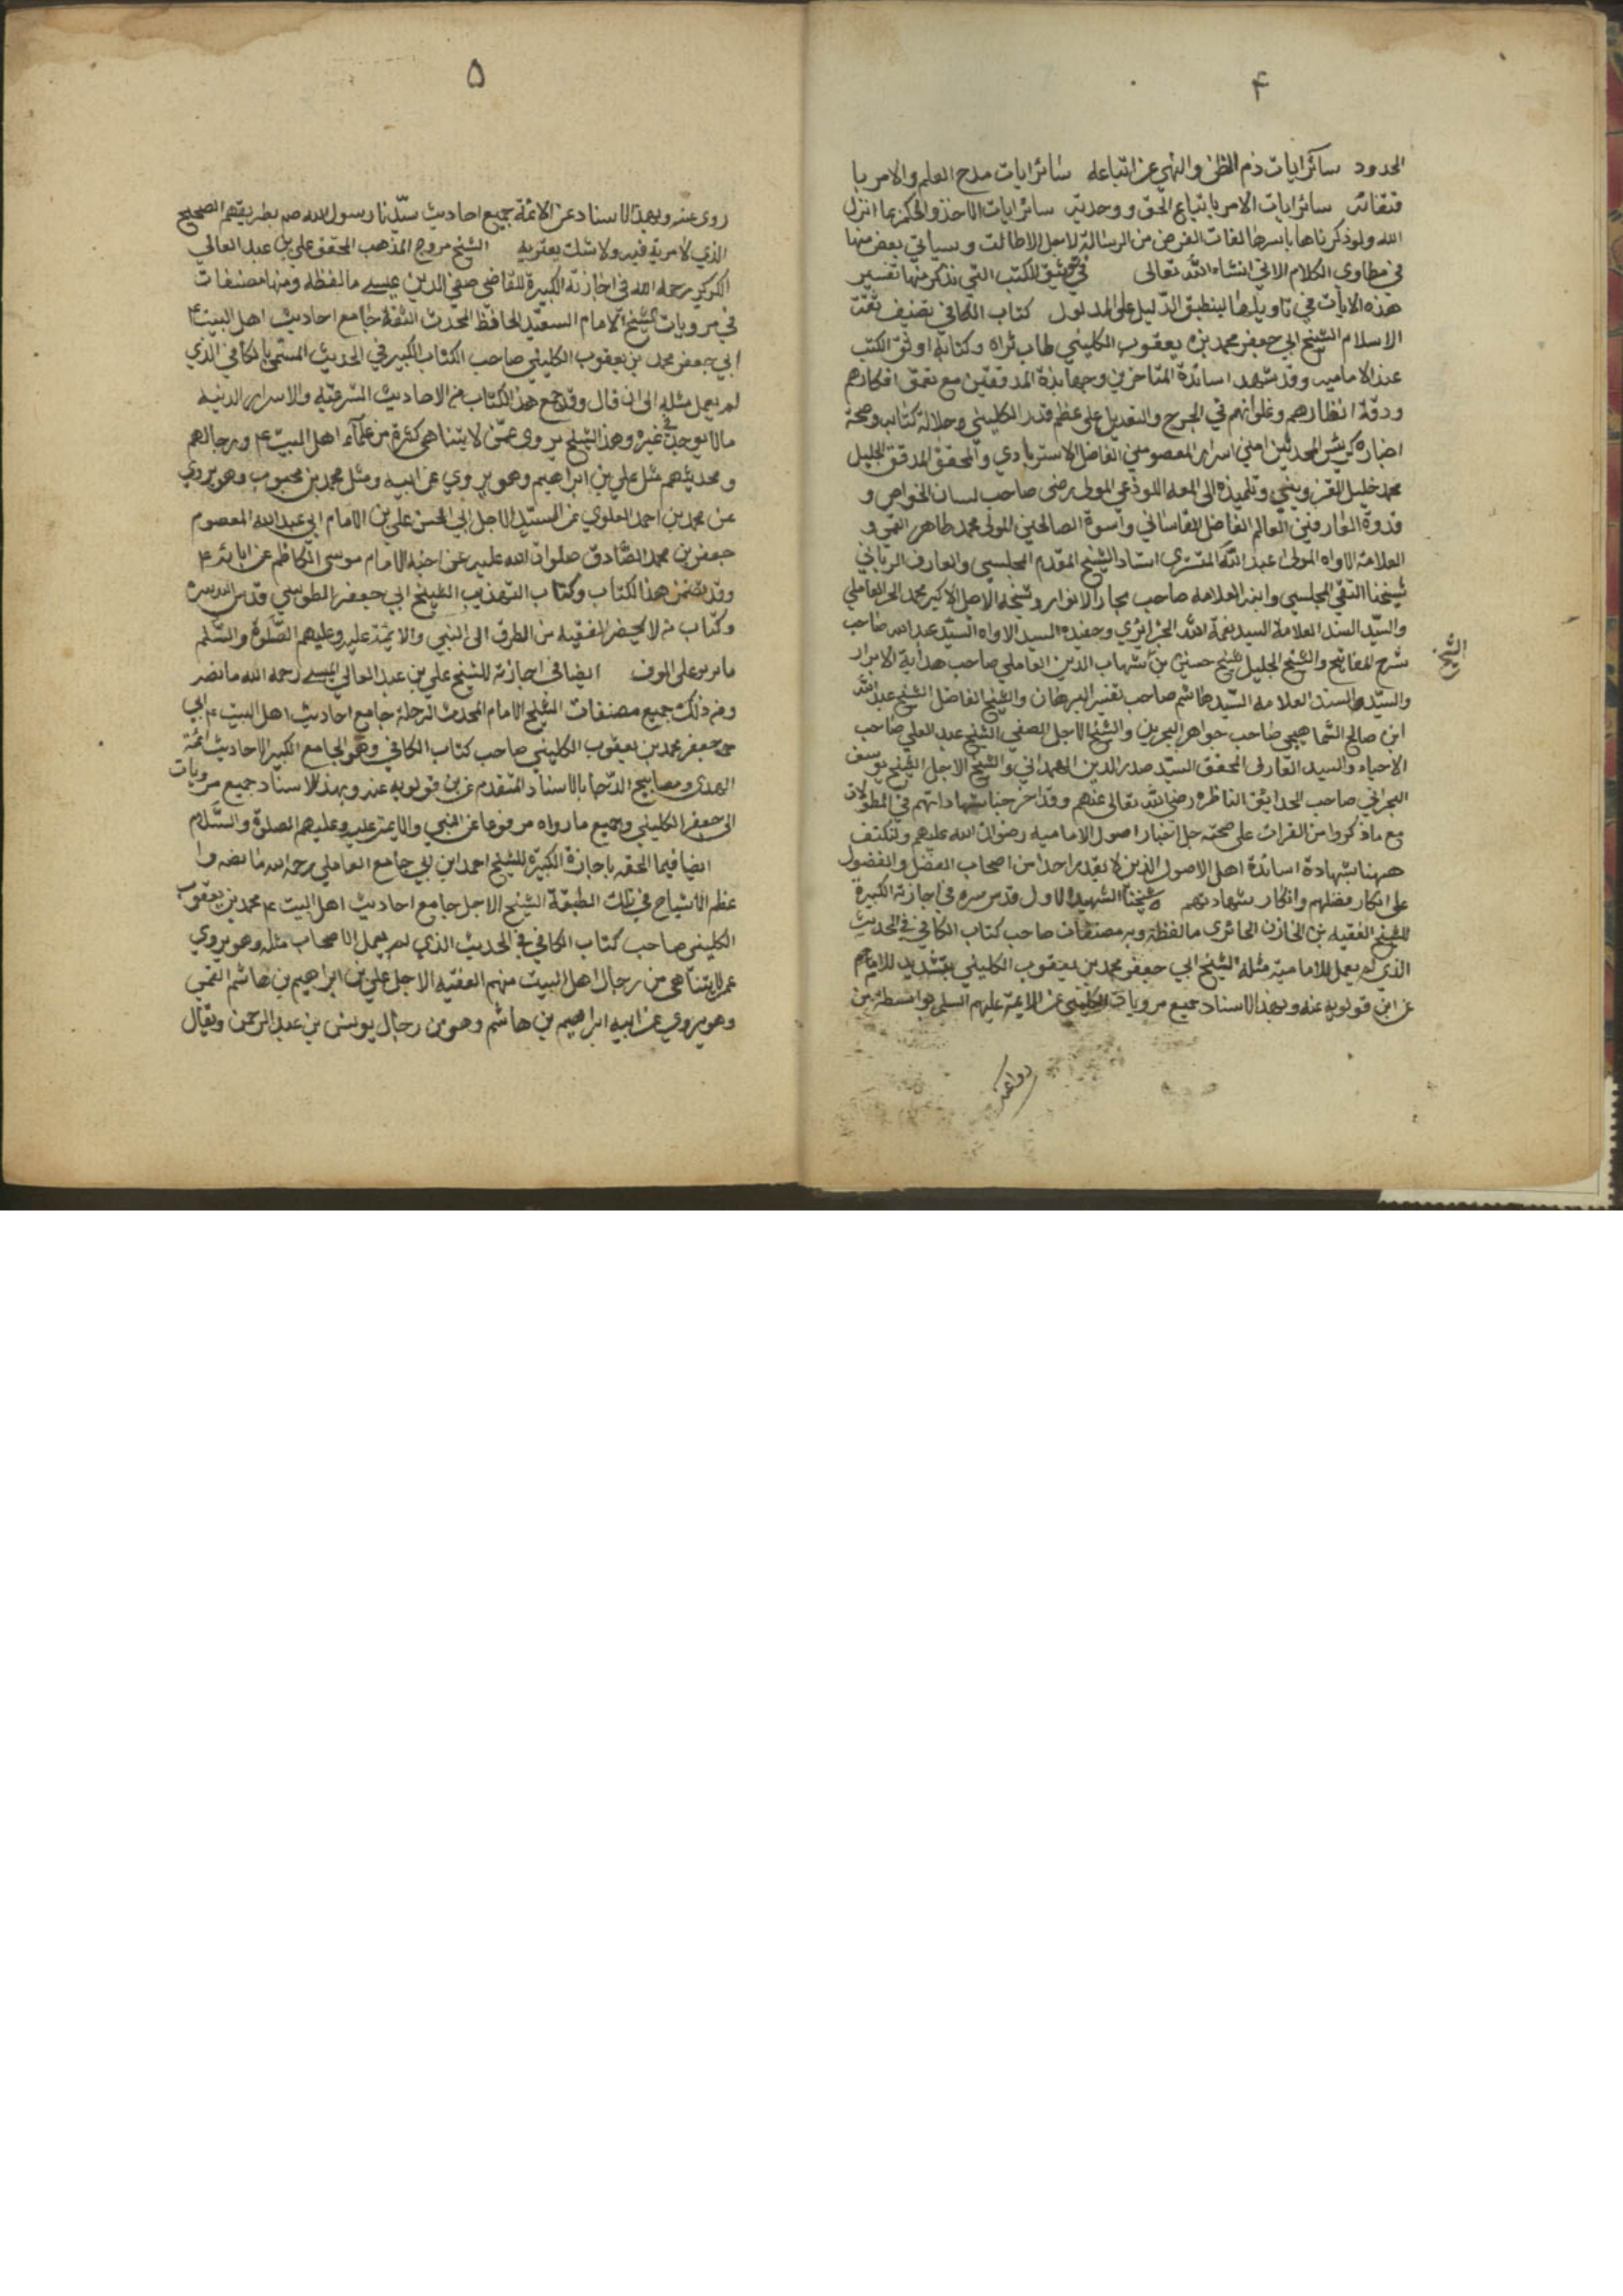 ۴
الحدود سائر ايات ذم الظن والنهي عن اتباعه سائر ايات مدح العلم والامر با
قتفائه سائر ايات الامر باتباع الحق ووحدته سائر ايات الاخذ والحكم بما انزل
الله ولو ذكرناها باسرها لفات الغرض من الرسالة لاجل الاطالت وسياتي بعض منها
في مطاوى الكلام الاتي انشاء الله تعالى في توثيق الكتب التي نذكر منها تفسير
هذه الايات في تاويلها لينطبق الدليل على المدلول كتاب الكافي تصنيف ثقة
الاسلام الشيخ ابي جعفر محمد بن يعقوب الكليني طاب ثراه وكتابه اوثق الكتب
عند الامامية وقد شهد اساتدة المتاخرين وجهابذة المدققين مع تعمق افكارهم
ودقة انظارهم وغلوائهم في الجرح والتعديل على عظم قدر الكليني وجلالة كتابه وصحة
اخباره كرئيس المحدثين امين اسرار المعصومين الفاضل الاستربادي والمحقق المدقق الجليل
محمد خليل القزويني وتلميذه المولى رضى صاحب لسان الخواص و
قدوة العارفين العالم الفاضل القاساني واسوة الصالحين المولى محمد طاهر القمي و
العلامة الاواه المولى عبد الله التستري استاد الشيخ المقدم المجلسي والعارف الرباني
شيخنا التقي المجلسي وابنه العلامه صاحب بحار الانوار وشيخه الاصل الاكبر محمد الحر العاملي
والسيد السند العلامة السيد نعمة الله الجزائري وحفيده السيد الاواه السيد عبد الله صاحب
شرح المفاتيح والشيخ الجليل الشيخ حسين بن شهاب الدين العاملي صاحب هداية الابرار
الشيخ
والسيد السند العلامه السيد هاشم صاحب تفسير البرهان والشيخ الفاضل الشيخ عبد الله
ابن صالح السماهيجي صاحب جواهر البحرين والشيخ الاجل الصفي الشيخ عبد العلي صاحب
الاحياء والسيد العارف المحقق السيد صدر الدين الهمداني والشيخ الاجل الشيخ يوسف
البحراني صاحب الحدايق الناظره رضي الله تعالى عنهم وقد اخرجنا شهاداتهم في المطولات
مع ما ذكروا من القرائن على صحة جل اخبار اصول الامامية رضوان الله عليهم ولنكتف
ههنا بشهادة اساتدة اهل الاصول الذين لا يقدر احد من اصحاب الفضل والفضول
على انكار فضلهم وانكار شهادتهم شيخنا الشهيد الاول قدس سره في اجازته الكبيرة
للشيخ الفقيه بن الخازن الحائرى ما لفظه وبه مصنفات صاحب كتاب الكافي في الحديث
الذي لم يعمل للامامية مثله الشيخ ابي جعفر محمد بن يعقوب الكليني بتشديد اللام
عن ابن قولويه عنه وبهذا الاسناد جميع مرويات الكليني عن الائمة عليهم السلم بواسطة من
روا عنه
۵
روى عنه وبهذا الاسناد عن الائمة جميع احاديث سيدنا رسول الله ص بطريقهم الصحيح
الذي لا مرية فيه ولا شك يعتريه الشيخ مروج المذهب المحقق علي بن عبد العالي
الكركي رحمه الله في اجازته الكبيرة للقاضي صفي الدين عيسى ما لفظه ومنها مصنفات
في مرويات الشيخ الامام السعيد الحافظ المحدث الثقة جامع احاديث اهل البيت ع
ابي جعفر محمد بن يعقوب الكليني صاحب الكتاب الكبير في الحديث المسمى بالكافي الذي
لم يعمل مثله الى ان قال وقد جمع هذا الكتاب من الاحاديث الشرعية والاسرار الدينيه
ما لا يوجد في غيره وهذا الشيخ يروى عمن لا يتناهى كثرة من علماء اهل البيت ع ورجالهم
ومحديثهم مثل علي بن ابراهيم وهو يروي عن ابيه ومثل محمد بن محبوب وهو يروي
عن محمد بن احمد العلوي عن السيد الاجل ابي الحسن علي بن الامام ابي عبد الله المعصوم
جعفر بن محمد الصادق صلوات الله عليه عن اخيه الامام موسى الكاظم عن ابائه ع
وقد تضمن هذا الكتاب وكتاب التهذيب للشيخ ابي جعفر الطوسي قدس الله سره
وكتاب من لا يحضره الفقيه من الطرق الى النبي والائمة عليه وعليهم الصلوة والسلم
ما يربو على الوف ايضا في اجازته للشيخ علي بن عبد العالي الميسي رحمه الله ما نصه
ومن ذلك جميع مصنفات الشيخ الامام المحدث الرحلة جامع احاديث اهل البيت ع ابي
جعفر محمد بن يعقوب الكليني صاحب كتاب الكافي وهو الجامع الكبير لاحاديث ائمة
الهدى ومصابيح الدجا بالاسناد المتقدم عن بن قولويه عنه وبهذا الاسناد جميع مرويات
ابى جعفر الكليني وجميع ما رواه مرفوعا عن النبي والائمة عليه وعليهم الصلوة والسلام
ايضا فيما الحقه باجازة الكبيرة للشيخ احمد ابن ابي جامع العاملي رحمه الله ما نصه وا
عظم الاشياخ في تلك الطبقة الشيخ الاجل جامع احاديث اهل البيت ع محمد بن يعقوب
الكليني صاحب كتاب الكافي في الحديث الذي لم يعمل الاصحاب مثله وهو يروي
عمن لا يتناهى من رجال اهل البيت منهم الفقيه الاجل علي بن ابراهيم بن هاشم القمي
وهو يروي عن ابيه ابراهيم بن هاشم وهو من رجال يونس بن عبد الرحمن ويقال